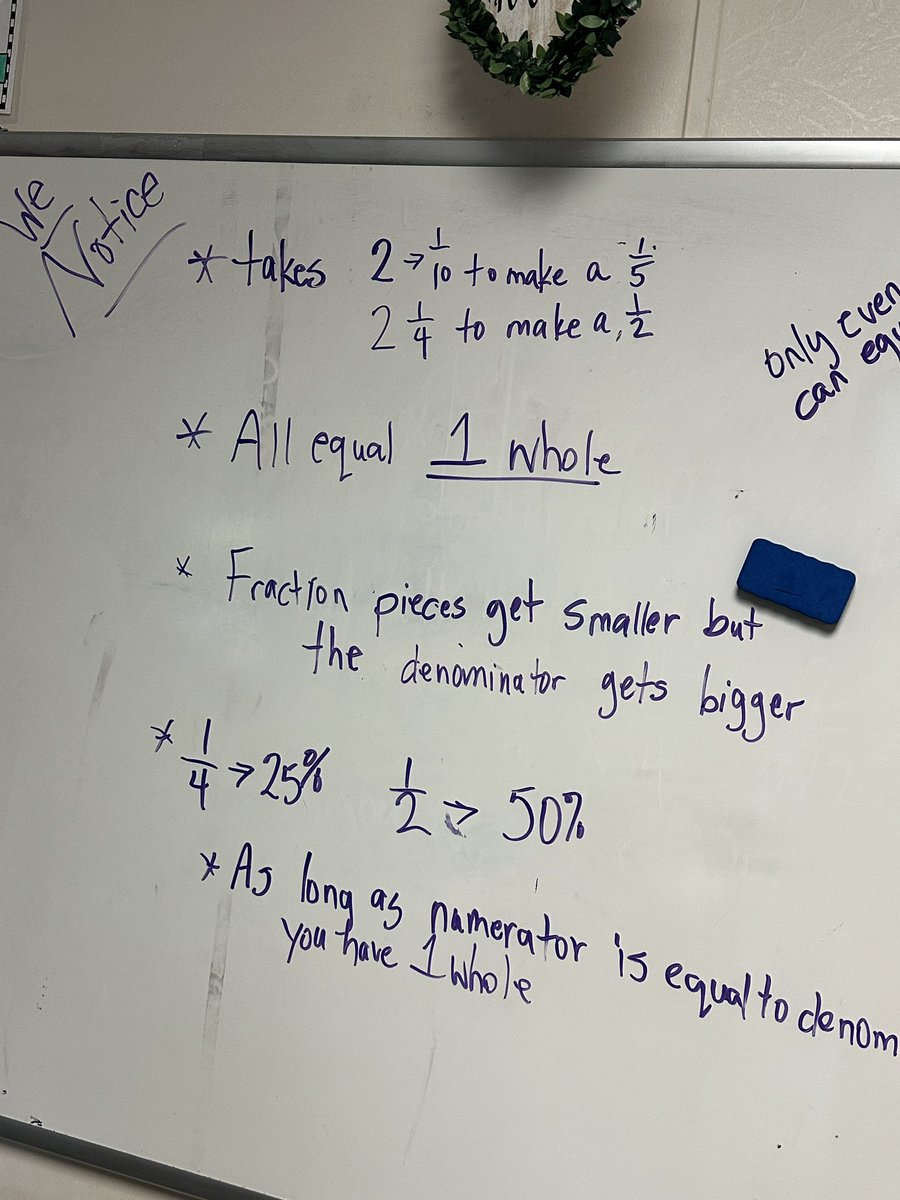 We
Notice
* takes 2 → 1/10 to make a 1/5
2 1/4 to make a 1/2
only even
can equ
* All equal 1 whole
* Fraction pieces get smaller but
the denominator gets bigger
* 1/4 → 25% 1/2 → 50%
* As long as numerator is equal to denom
you have 1 whole